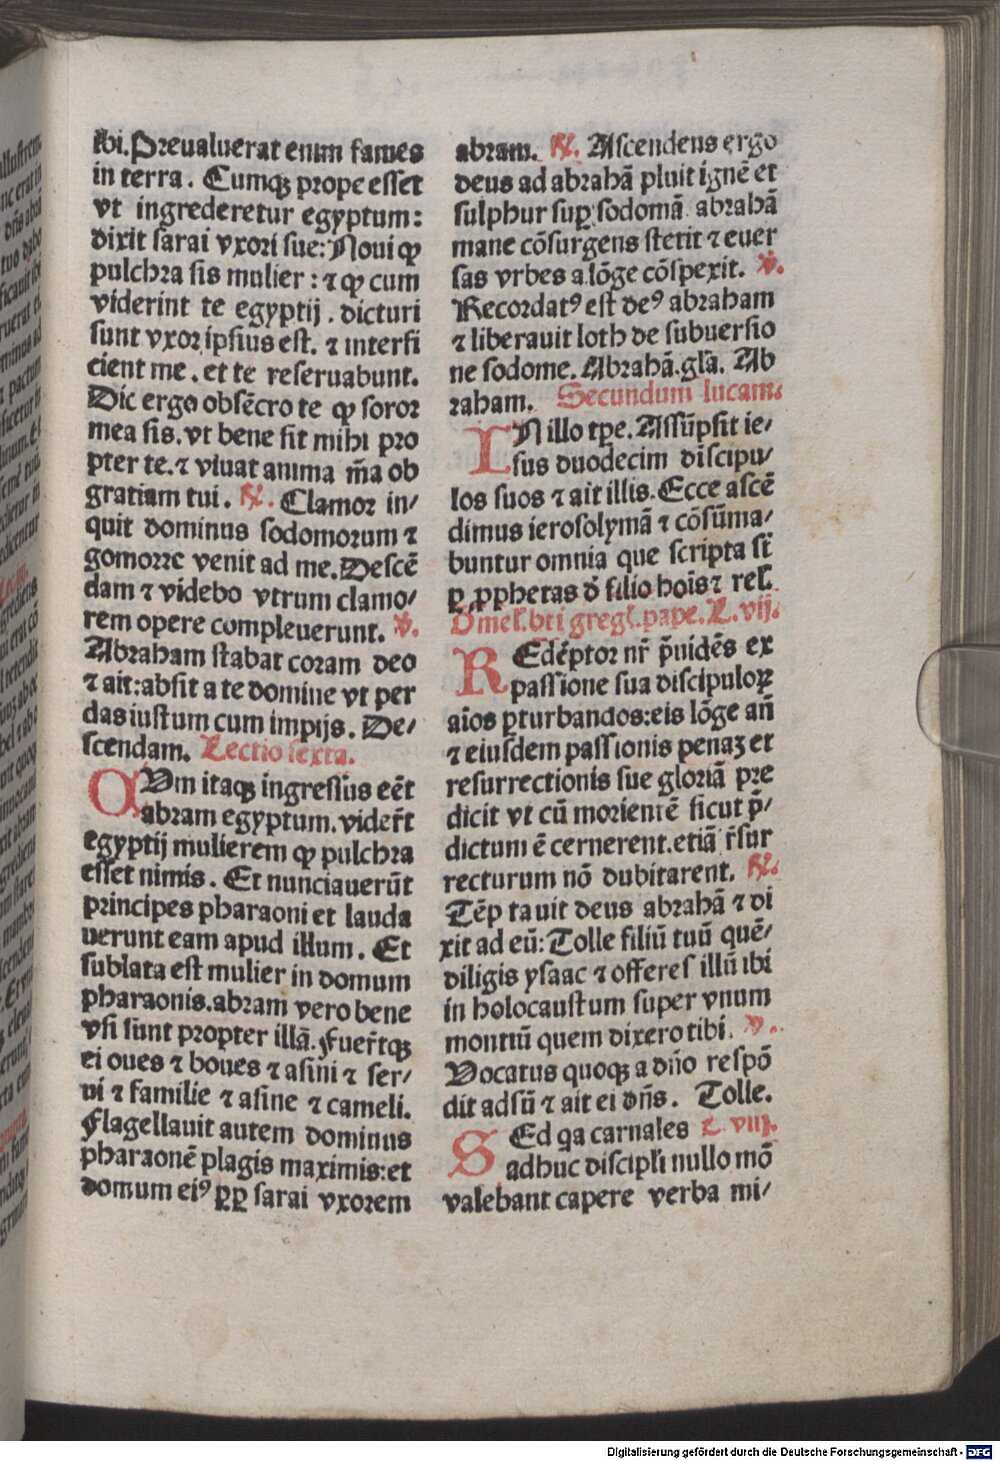 ibi. Preualuerat enim fames
in terra. Cumqꝫ prope esset
vt ingrederetur egyptum:
dixit sarai vxori sue: Noui ꝙ
pulchra sis mulier: ⁊ ꝙ cum
viderint te egyptij. dicturi
sunt vxor ipsius est. ⁊ interfi
cient me. et te reseruabunt.
Dic ergo obsēcro te ꝙ soror
mea sis. vt bene sit mihi pro
pter te. ⁊ viuat anima m̄a ob
gratiam tui. ℟. Clamor in/
quit dominus sodomorum ⁊
gomorre venit ad me. Descē
dam ⁊ videbo vtrum clamo/
rem opere compleuerunt. ℣.
Abraham stabat coram deo
⁊ ait: absit a te domine vt per
das iustum cum impijs. De/
scendam. Lectio sexta.
CVm itaqꝫ ingressus eēt
abram egyptum. vider̄t
egyptij mulierem ꝙ pulchra
esset nimis. Et nunciauerūt
principes pharaoni et lauda
uerunt eam apud illum. Et
sublata est mulier in domum
pharaonis. abram vero bene
vsi sunt propter illā. Fuer̄tqꝫ
ei oues ⁊ boues ⁊ asini ⁊ ser/
ui ⁊ familie ⁊ asine ⁊ cameli.
Flagellauit autem dominus
pharaonē plagis maximis: et
domum eiꝰ ꝓꝑ sarai vxorem
abram. ℟. Ascendens ergo
deus ad abrahā pluit ignē et
sulphur suꝑ sodomā. abrahā
mane cōsurgens stetit ⁊ euer
sas vrbes a lōge cōspexit. ℣.
Recordatꝰ est deꝰ abraham
⁊ liberauit loth de subuersio
ne sodome. Abrahā. gl̄a. Ab
raham. Secundum lucam.
IN illo tꝑe. Assūpsit ie/
sus duodecim discipu/
los suos ⁊ ait illis. Ecce ascē
dimus ierosolymā ⁊ cōsūma/
buntur omnia que scripta st̄
ꝑ ꝓphetas d̄ filio hoīs ⁊ rel̄.
Omel̄. bti gregl̄. pape. L. vij.
REdēptor nr̄ p̄uidēs ex
passione sua discipuloꝝ
aīos ꝑturbandos: eis lōge an̄
⁊ eiusdem passionis penaꝫ et
resurrectionis sue gloriā pre
dicit vt cū morientē sicut p̄/
dictum ē cernerent. etiā r̄sur
recturum nō dubitarent. ℟.
Tēp tauit deus abrahā ⁊ di
xit ad eū: Tolle filiū tuū quē/
diligis ysaac ⁊ offeres illū ibi
in holocaustum super vnum
montiū quem dixero tibi. ℣.
Vocatus quoqꝫ a dn̄o respō
dit adsū ⁊ ait ei dn̄s. Tolle.
SEd qa carnales L. viij.
adhuc discipl̄i nullo mō
valebant capere verba mi/
Digitalisierung gefördert durch die Deutsche Forschungsgemeinschaft - DFG